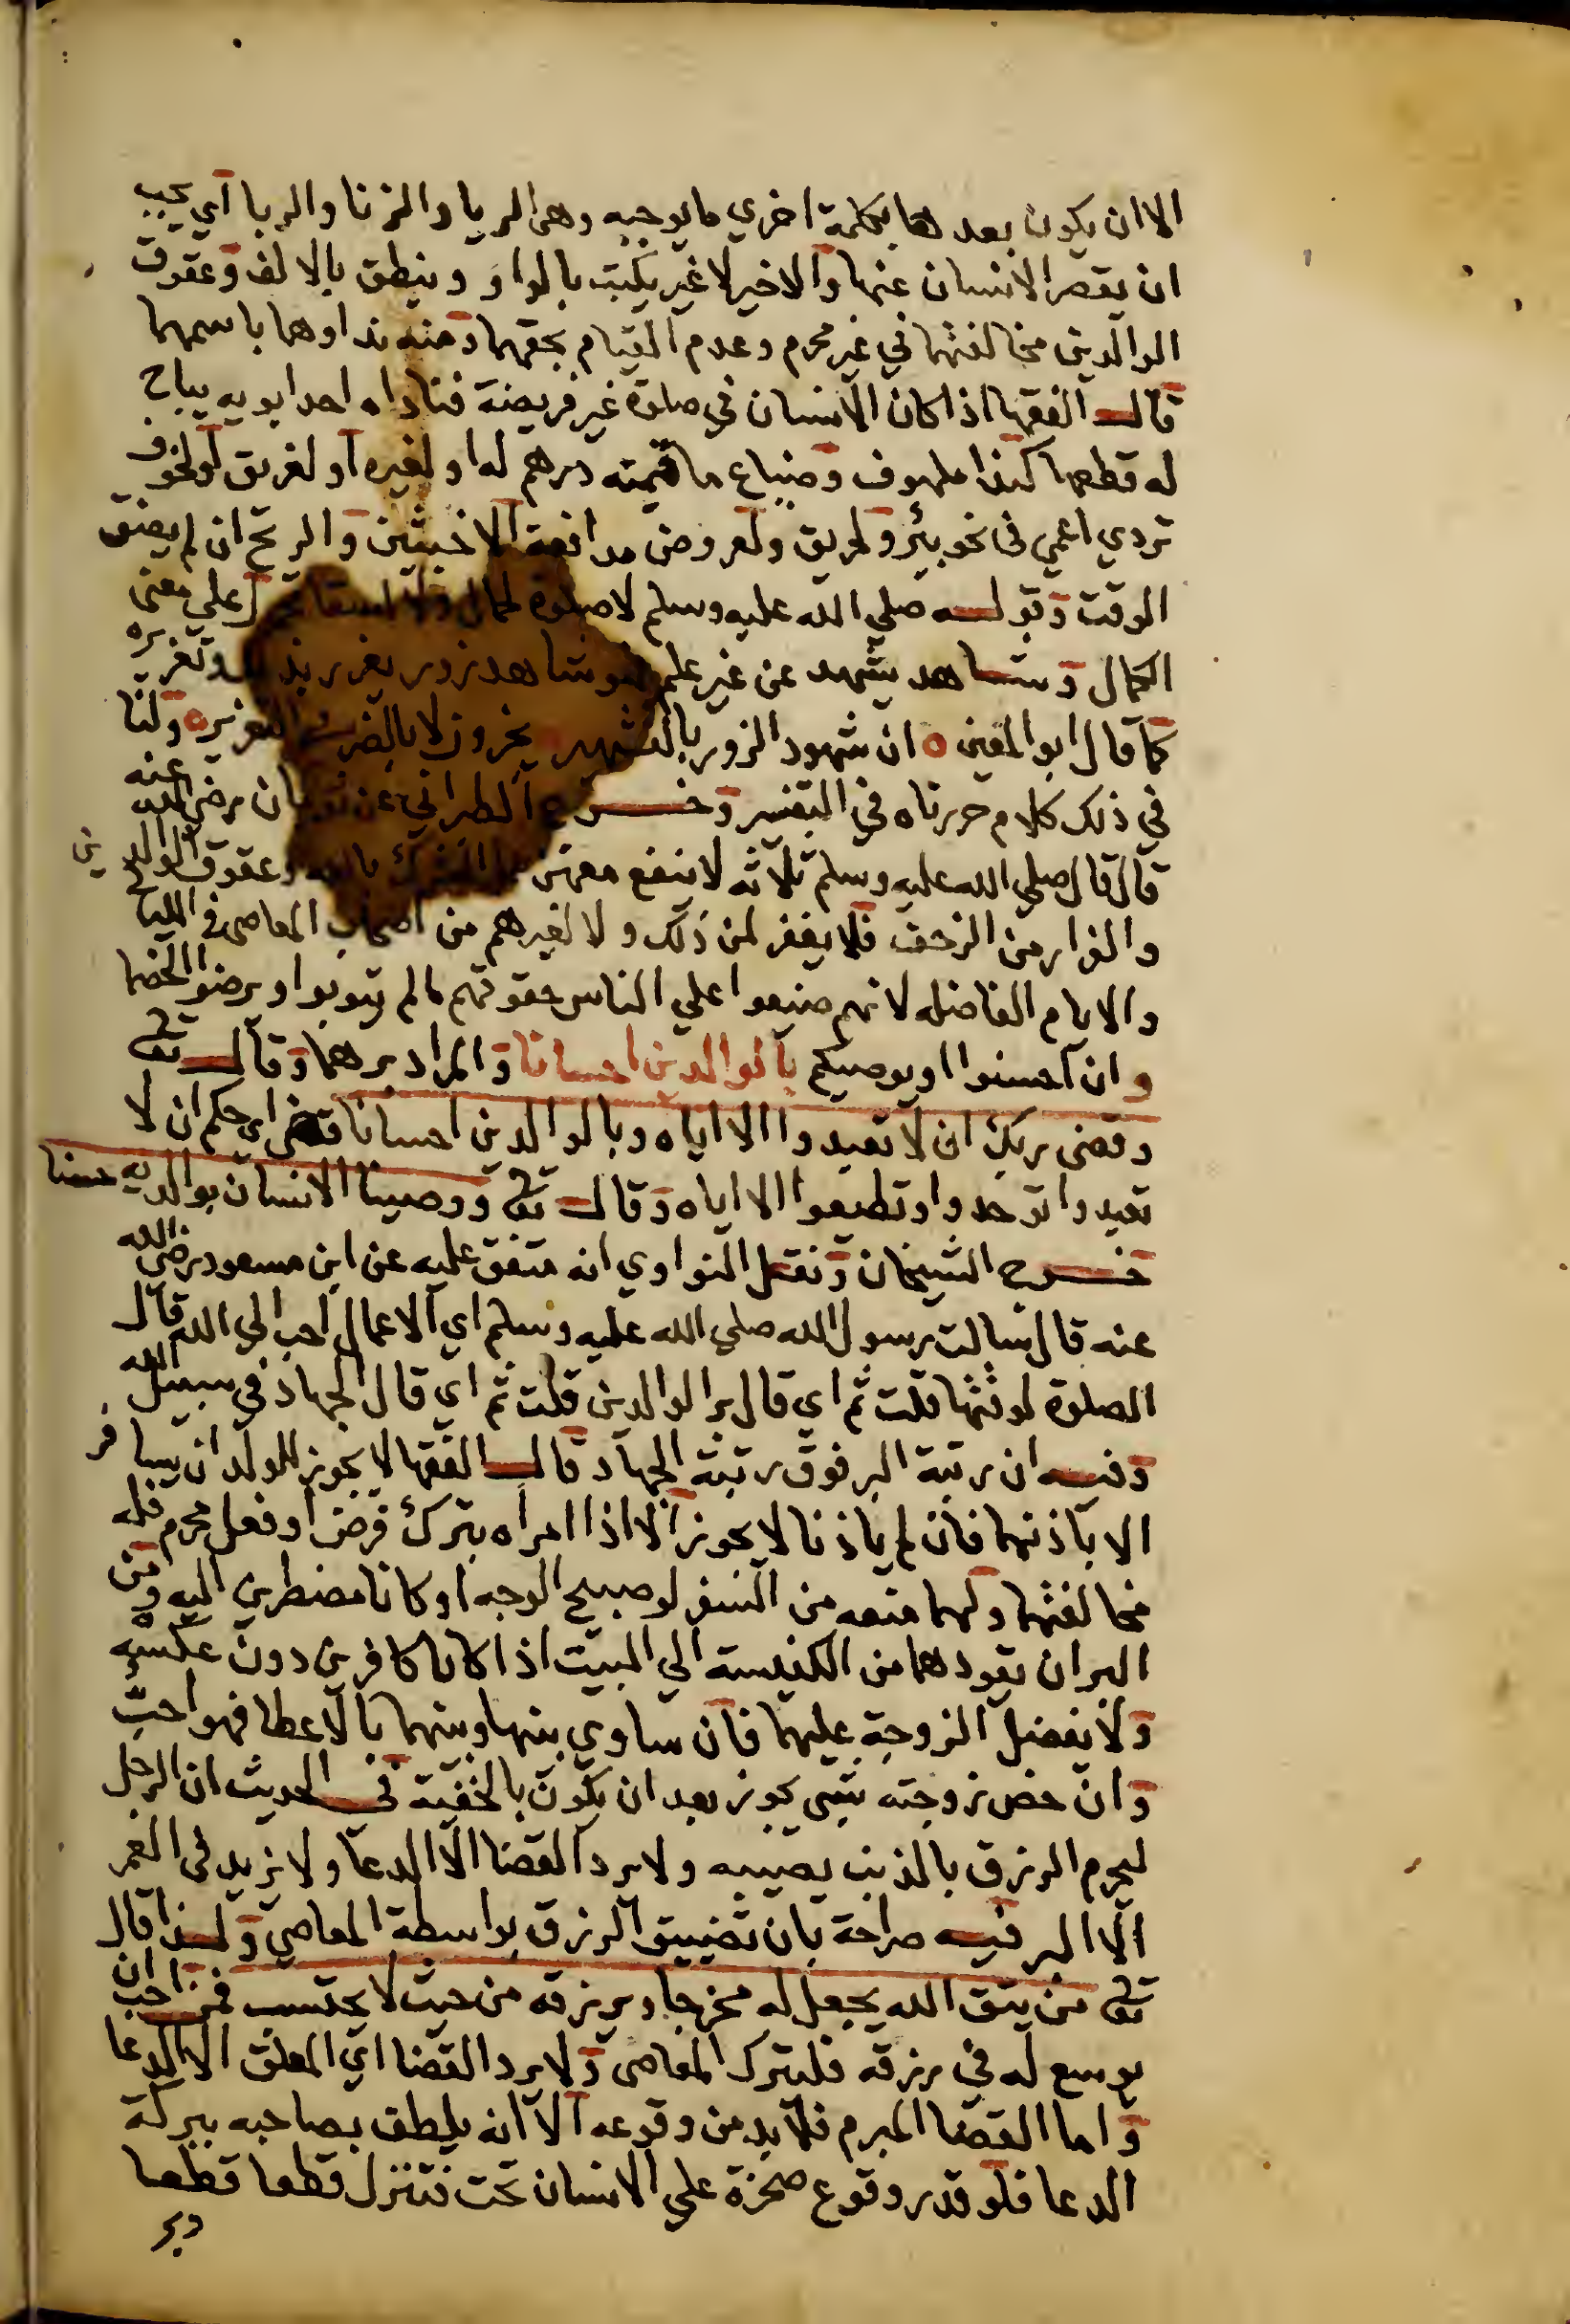 الا ان يكون بعدها بكلمة اخري ما يوجبه وهي الريا والزنا والربا اي يجب
ان يقصر الانسان عنها والاخير لا غير يكتب بالواو وينطق بالالف وعقوق
الوالدين مخالفتهما في غير محرم وعدم القيام بحقهما ومنه نداوهما باسمهما
قال الفقها اذا كان الانسان في صلوة غير فريضة فناداه احد ابويه يباح
له قطعها كندا ملهوف وضياع ما قيمته درهم له او لغيره او لغريق او لخوف
تردي اعمي في نحو بئر ولحريق ولعروض مدافعة الاخبثين والريح ان لم يضق
الوقت وقوله صلي الله عليه وسلم لا صلوة على معنى
الكمال وشاهد يشهد عن غير علم فهو شاهد زور يعزر وتعزيره
كما قال ابو المعين ان شهود الزور بالتشهير يعزرون لا بالضرب ولنا
في ذلك كلام حررناه في التفسير وخرج الطبراني عن ثوبان رضي الله عنه
قال قال صلي الله عليه وسلم ثلاثة لا ينفع معهن عمل الشرك بالله وعقوق الوالدين
والفرار من الزحف فلا يغفر لمن ذلك ولا لغيرهم من اصحاب المعاصي في الليالي
والايام الفاضله لانهم ضيعوا علي الناس حقوقهم ما لم يتوبوا ويرضوا الخصما
وان احسنوا او يوصيكم بالوالدين احسانا والمراد برهما وقال تعالى
وقضى ربك ان لا تعبدوا الا اياه وبالوالدين احسانا قضى اي حكم ان لا
تعبدوا توحدوا وتطيعوا الا اياه وقال تعالى ووصينا الانسان بوالديه حسنا
خرج الشيخان ونقل النواوي انه متفق عليه عن ابن مسعود رضي الله
عنه قال سالت رسول الله صلي الله عليه وسلم اي الاعمال احب الي الله قال
الصلوة لوقتها قلت ثم اي قال بر الوالدين قلت ثم اي قال الجهاد في سبيل الله
وفيه ان رتبة البر فوق رتبة الجهاد قال الفقها لا يجوز للولد ان يسافر
الا باذنهما فان لم ياذنا لا يجوز الا اذا امراه بترك فرض او فعل محرم فله
مخالفتهما ولهما منعه من السفر لو صبيح الوجه او كانا مضطرين اليه ومن
البر ان يقودهما من الكنيسة الي البيت اذا كانا كافرين دون عكسه
ولا يفضل الزوجة عليهما فان ساوي بينها وبينهما بالاعطا فهو احب
وان خص زوجته بشي يجوز بعد ان يكون بالخفية في الحديث ان الرجل
ليحرم الرزق بالذنب يصيبه ولا يرد القضا الا الدعا ولا يزيد في العمر
الا البر فيه صراحة بان تضييق الرزق بواسطة المعاصي ولذا قال
تعالى من يتق الله يجعل له مخرجا ويرزقه من حيث لا يحتسب فمن احب ان
يوسع له في رزقه فليترك المعاصي ولا يرد القضا اي المعلق الا الدعا
واما القضا المبرم فلا بد من وقوعه الا انه يلطف بصاحبه ببركة
الدعا فلو قدر وقوع صخرة علي الانسان تحت فتنزل قطعا قطعا